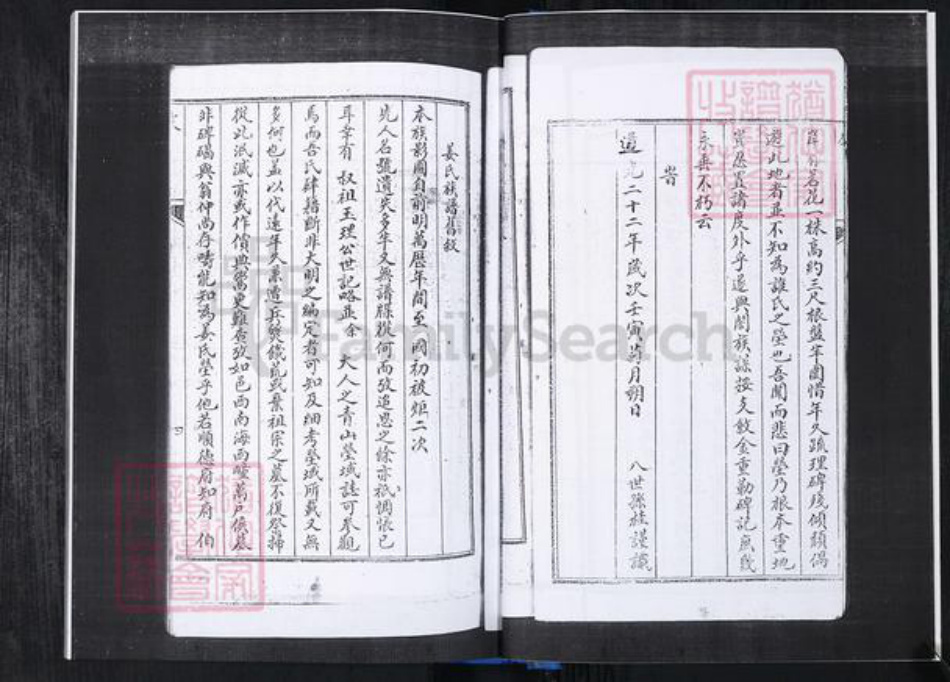 芍花一株高約三尺根盤半圍惜年久疏理碑殘傾頹偶
遊此地者並不知為誰氏之塋也吾聞而悲曰塋乃根本重地
豈忍置諸度外乎遂與闔族謀按文斂金重勒碑記庶幾
永垂不朽云
旹
道光二十二年歲次壬寅菊月朔日 八世孫桂謹識
姜氏族譜舊敘
本族影圖自前明萬歷年間至 國初被炬二次
先人名號遺失多年又無譜牒從何而攷追思之餘亦祇惆悵已
耳幸有 叔祖玉理公世記略並余 大人之青山塋域誌可參觀
焉而吾氏肆籍斷非大明之編定者可知及細考塋域所載又無
多何也蓋以代遠年久累遭兵燹饑荒或棄祖宗之墓不復祭掃
從此泯滅亦或作價典鬻更難查攷如邑西南海西疃萬戶侯墓
非碑碣與翁仲尚存疇能知為姜氏塋乎他若順德府知府 伯
FamilySearch